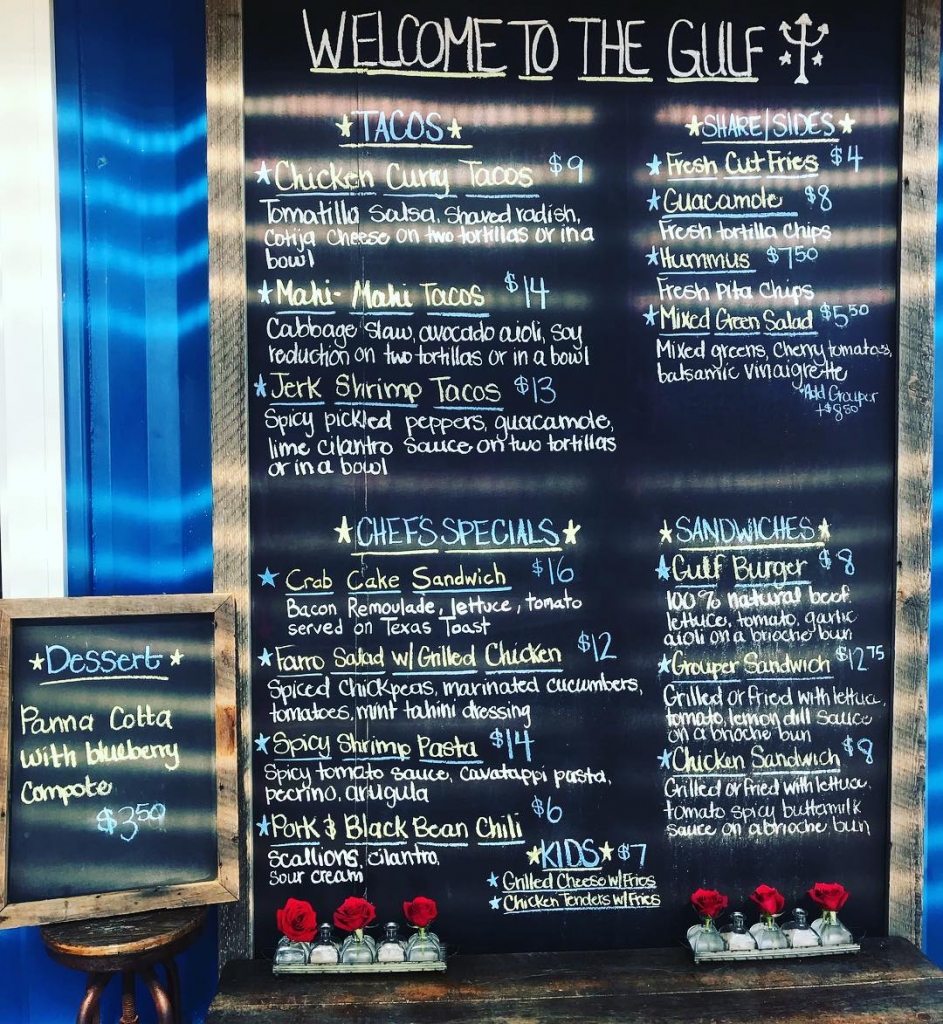 WELCOME TO THE GULF
TACOS
Chicken Curry Tacos $9
Tomatillo Salsa, Shaved radish,
Cotija Cheese on two tortillas or in a
bowl
Mahi-Mahi Tacos $14
Cabbage slaw, avocado aioli, soy
reduction on two tortillas or in a bowl
Jerk Shrimp Tacos $13
Spicy pickled peppers, guacamole,
lime cilantro sauce on two tortillas
or in a bowl
SHARE/SIDES
Fresh Cut Fries $4
Guacamole $8
Fresh tortilla Chips
Hummus $7.50
Fresh Pita Chips
Mixed Green Salad $5.50
Mixed greens, Cherry tomatoes,
balsamic vinaigrette
*Add Grouper
+$8.50
CHEF'S SPECIALS
Crab Cake Sandwich $16
Bacon Remoulade, lettuce, tomato
served on Texas Toast
Farro Salad w/Grilled Chicken $12
Spiced Chickpeas, marinated cucumbers,
tomatoes, mint tahini dressing
Spicy Shrimp Pasta $14
Spicy tomato sauce, cavatappi pasta,
pecrino, arugula
Pork & Black Bean Chili $6
scallions, cilantro,
sour cream
KIDS $7
Grilled Cheese w/Fries
Chicken Tenders w/Fries
SANDWICHES
Gulf Burger $8
100% natural beef,
lettuce, tomato, garlic
aioli on a brioche bun
Grouper Sandwich $12.75
Grilled or fried with lettuce,
tomato, lemon dill sauce
on a brioche bun
Chicken Sandwich $8
Grilled or fried with lettuce,
tomato spicy buttermilk
sauce on a brioche bun
Dessert
Panna Cotta
with blueberry
compote
$3.50